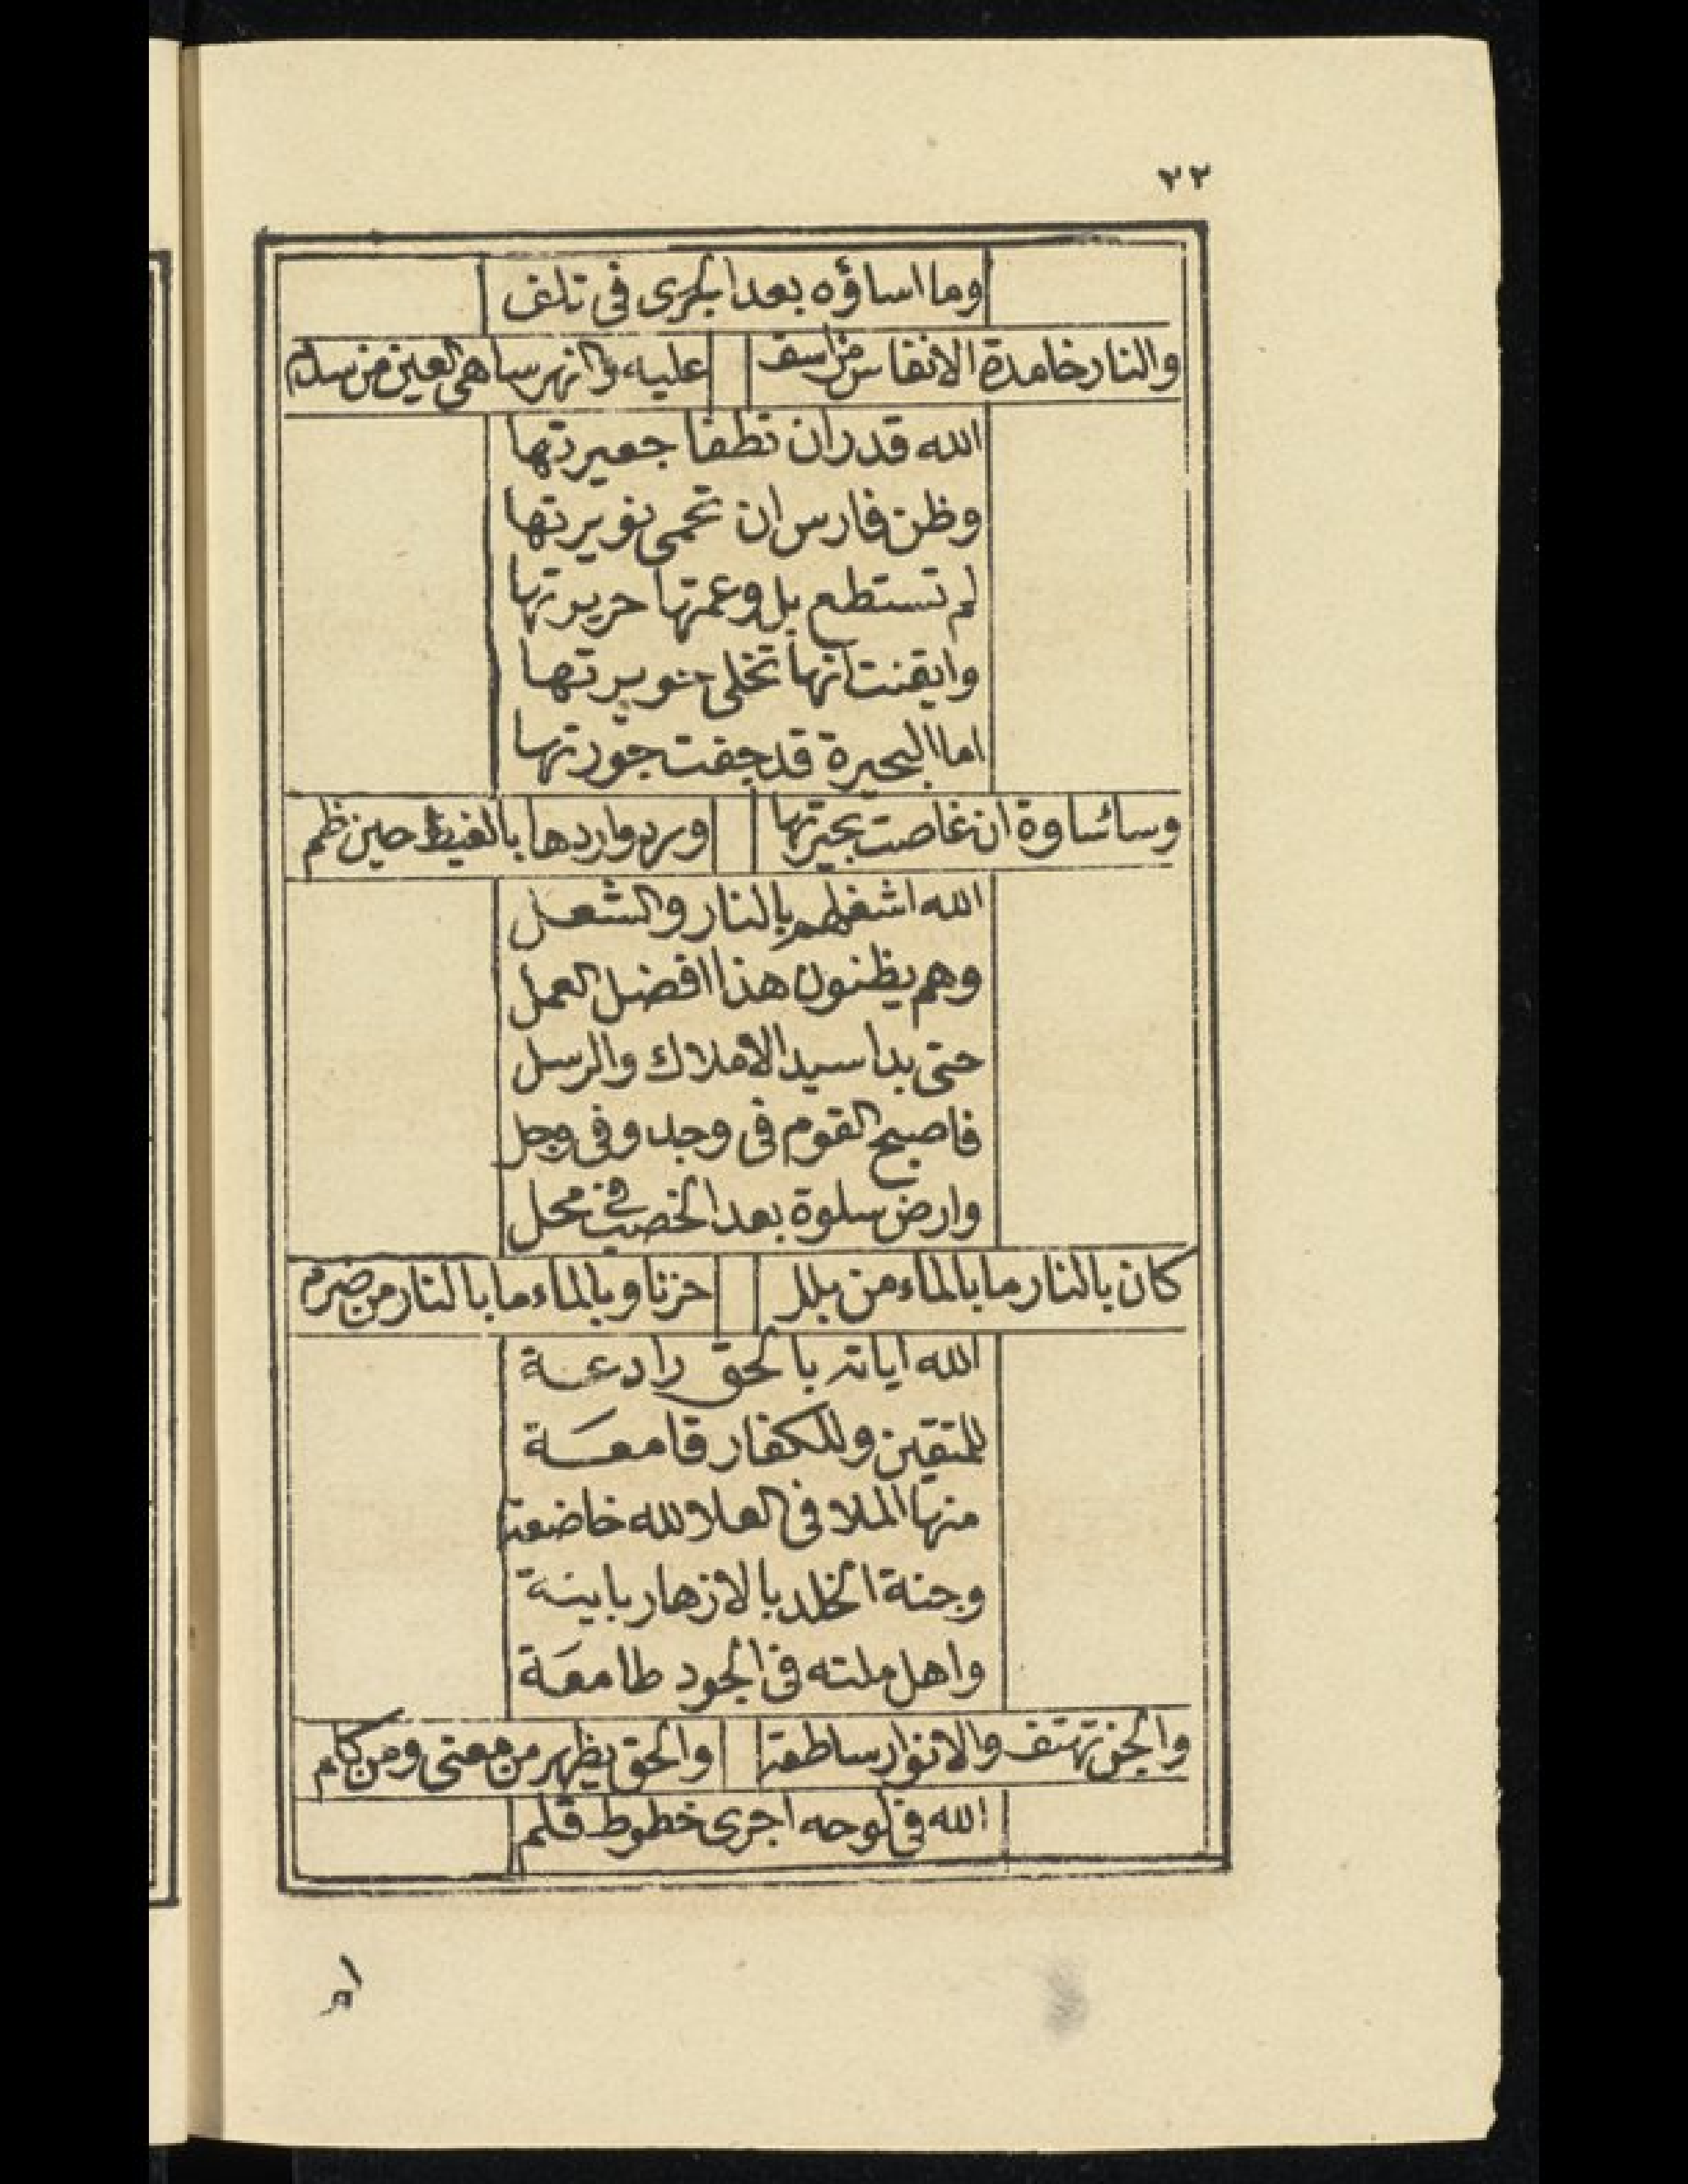 ٢٢
وما اساؤه بعد الجرى فى تلف
والنار خامدة الانفاس من اسف عليه والنهر ساهى العين من سدم
الله قدر ان تطفا جميرتها
وظن فارس ان تحمى نويرتها
لم تستطع بل وعمتها حريرتها
وايقنت انها تخلى حنويرتها
اما البحيرة قد جفت جورتها
وساء ساوة ان غاصت بحيرتها ورد واردها بالغيظ حين ظم
الله اشغلهم بالنار والشعل
وهم يظنون هذا افضل العمل
حتى بدا سيد الاملاك والرسل
فاصبح القوم فى وجد وفى وجل
وارض سلوة بعد الخصب فى محل
كان بالنار ما بالماء من بلل حزنا وبالماء ما بالنار من ضرم
الله اياته بالحق رادعة
للمتقين وللكفار قامعة
منها الملا فى العلا لله خاضعة
وجنة الخلد بالازهار يابينة
واهل ملته فى الجود طامعة
والجن تهتف والانوار ساطعة والحق يظهر من معنى ومن كلم
الله فى لوحه اجرى خطوط قلم